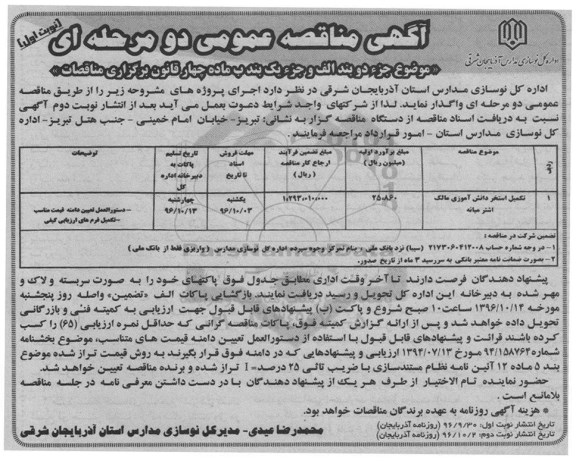 آگهی مناقصه عمومی دو مرحله ای
(نوبت اول)
اداره کل نوسازی مدارس آذربایجان شرقی
* موضوع جزء دو بند الف و جزء یک بند ب ماده چهار قانون برگزاری مناقصات *
اداره کل نوسازی مدارس استان آذربایجان شرقی در نظر دارد اجرای پروژه های مشروحه زیر را از طریق مناقصه
عمومی دو مرحله ای واگذار نماید. لذا از شرکتهای واجد شرایط دعوت بعمل می آید بعد از انتشار نوبت دوم آگهی
نسبت به دریافت اسناد مناقصه از دستگاه مناقصه گزار به نشانی: تبریز- خیابان امام خمینی - جنب هتل تبریز- اداره
کل نوسازی مدارس استان - امور قرارداد مراجعه فرمایند.
ردیف
موضوع مناقصه
مبلغ برآورد اولیه (میلیون ریال)
مبلغ تضمین فرآیند ارجاع کار مناقصه (ریال)
مهلت فروش اسناد تا تاریخ
تاریخ تسلیم پاکات به دبیرخانه اداره کل
توضیحات
۱
تکمیل استخر دانش آموزی مالک اشتر میانه
۲۵۰۸۶۰
۱۰۲۹۳۰۰۱۰۰۰۰
یکشنبه ۹۶/۱۰/۰۳
چهارشنبه ۹۶/۱۰/۱۳
-دستورالعمل تعیین دامنه قیمت مناسب
-تکمیل فرم های ارزیابی کیفی
تضمین شرکت در مناقصه :
۱- در وجه شماره حساب ۲۱۷۳۰۶۰۴۱۲۰۰۸ (سیبا) نزد بانک ملی ، بنام تمرکز وجوه سپرده اداره کل نوسازی مدارس (واریزی فقط از بانک ملی)
۲- بصورت ضمانت نامه معتبر بانکی به سررسید ۳ ماه از تاریخ صدور.
پیشنهاد دهندگان فرصت دارند تا آخر وقت اداری مطابق جدول فوق پاکتهای خود را به صورت سربسته و لاک و
مهر شده به دبیرخانه این اداره کل تحویل و رسید دریافت نمایند. بازگشایی پاکات الف «تضمین» واصله روز پنجشنبه
مورخه ۱۳۹۶/۱۰/۱۴ ساعت ۱۰ صبح شروع و پاکت (ب) پیشنهادهای قابل قبول جهت ارزیابی به کمیته فنی و بازرگانی
تحویل داده خواهد شد و پس از ارائه گزارش کمیته فوق، پاکات مناقصه گرانی که حداقل نمره ارزیابی (۶۵) را کسب
کرده باشند قرائت و پیشنهادهای قابل قبول با استفاده از دستورالعمل تعیین دامنه قیمت های متناسب، موضوع بخشنامه
شماره ۹۴/۱۵۸۷۶۴ مورخ ۱۳۹۴/۰۷/۱۳ ارزیابی و پیشنهادهایی که در دامنه فوق قرار بگیرند به روش قیمت تراز شده موضوع
بند ۵ ماده ۱۲ آئین نامه نظام مستندسازی با ضریب تاثیر ۲۵ درصد= I تراز شده و برنده مناقصه تعیین خواهد شد.
حضور نماینده تام الاختیار از طرف هر یک از پیشنهاد دهندگان با در دست داشتن معرفی نامه در جلسه مناقصه
بلامانع است .
* هزینه آگهی روزنامه به عهده برندگان مناقصات خواهد بود.
تاریخ انتشار نوبت اول: ۹۶/۹/۳۰ (روزنامه آذربایجان)
تاریخ انتشار نوبت دوم: ۹۶/۱۰/۲ (روزنامه آذربایجان)
محمدرضا عبدی- مدیر کل نوسازی مدارس استان آذربایجان شرقی